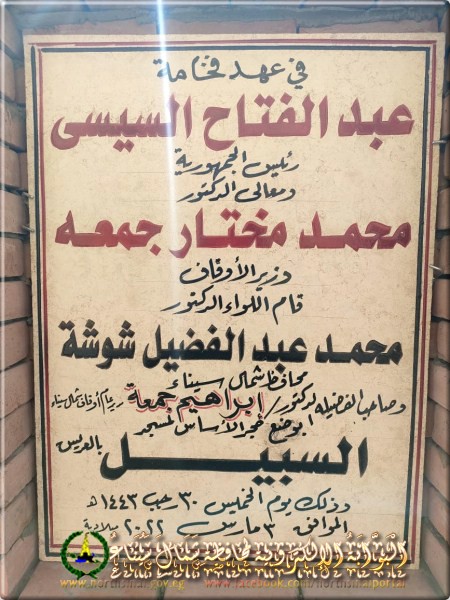 في عهد فخامة
عبد الفتاح السيسى
رئيس الجمهورية
ومعالى الدكتور
محمد مختار جمعه
وزير الأوقاف
قام اللواء الدكتور
محمد عبد الفضيل شوشة
محافظ شمال سيناء
وصاحب الفضيله الدكتور/ ابراهيم جمعة مدير عام أوقاف شمال سيناء
بوضع حجر الأساس لمسجد
السبيل بالعريش
وذلك يوم الخميس ٣٠ رجب ١٤٤٣ هـ
الموافق ٣ مارس ٢٠٢٢ ميلادية
البوابة الإلكترونية لمحافظة شمال سيناء
www.northsinai.gov.eg www.facebook.com/northsinaiportal